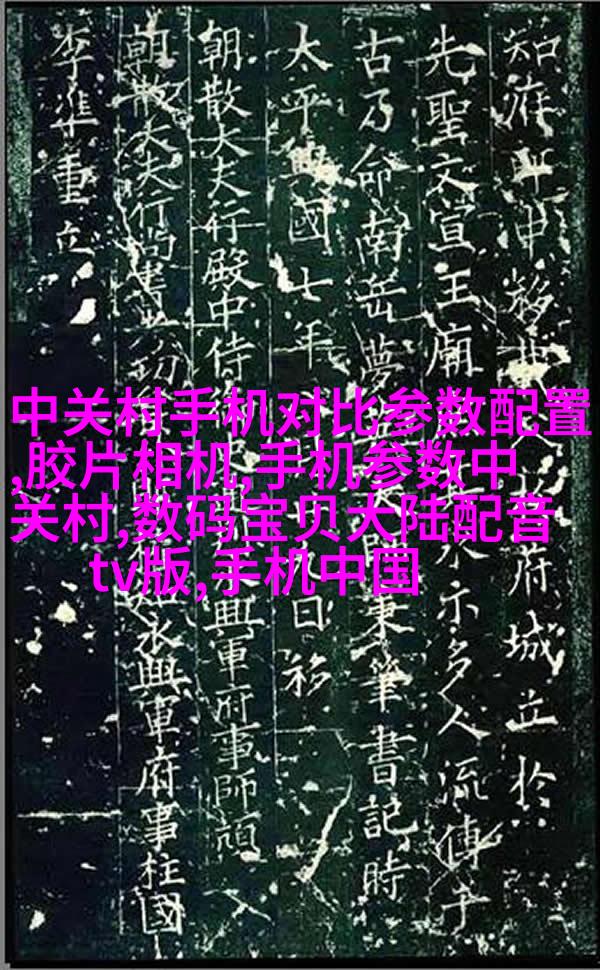 中关村手机对比参数配置
,胶片相机,手机参数中
关村,数码宝贝大陆配音
tv版,手机中国
知府冲移府城立於
先聖文宣王廟示多人流傳千
古乃命南岳夢秉筆書記時
太平興國七年日移
朝散大夫行殿中侍興軍府事師頏
朝散大夫行尚書永興軍府事柱國
李準重立